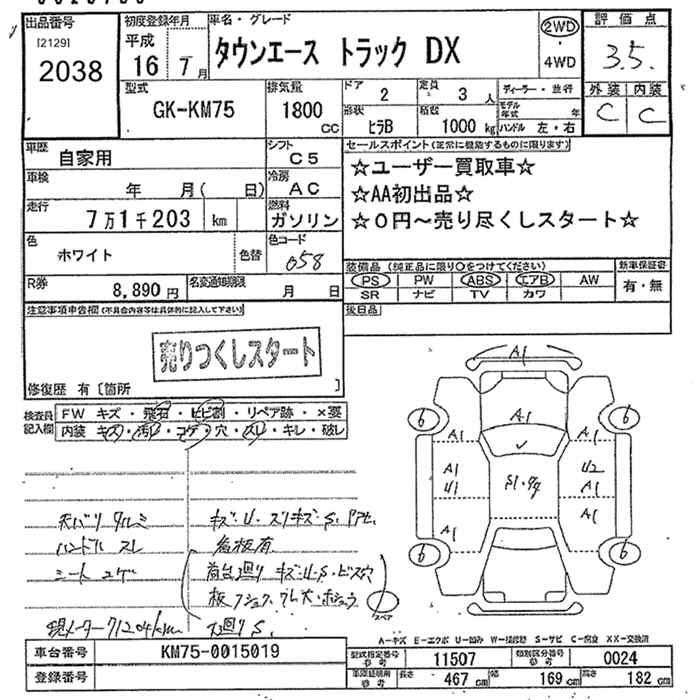 出品番号
[2129]
2038
初度登録年月
平成
16 年 7 月
車名・グレード
タウンエース トラック DX
2WD
・
4WD
評価点
3.5
外装 内装
C C
型式
GK-KM75
排気量
1800 CC
ドア 2
定員 3 人
形状 ヒラB
積数 1000 kg
ディーラー・並行
モデル年式 年
ハンドル 左・右
車歴 自家用
シフト C5
車検 年 月( 日)
冷房 AC
走行 7万1千203 km
燃料 ガソリン
色 ホワイト 色替
色コード 058
R券 8,890円
名変通知期限 月 日
セールスポイント(正常に機能するものに限ります)
☆ユーザー買取車☆
☆AA初出品☆
☆0円~売り尽くしスタート☆
装備品 (純正品に限り○をつけてください)
PS PW ABS エアB AW
SR ナビ TV カワ
新車保証書
有・無
後日品
注意事項申告欄(不具合内容等は具体的に記入して下さい)
売りつくしスタート
修復歴 有〔箇所 〕
検査員記入欄
FW キズ・飛石・ヒビ割・リペア跡・×要
内装 キズ・汚レ・コゲ・穴・スレ・キレ・破レ
天バリ タルミ
ハンドル スレ
シート コゲ
現メーター 71204km
キズ・U・スリキズ・S・
看板有
荷台廻り キズ・U・S・ビス穴
A1
A1
A1 A1
A1 U2
U1 A1
A1 A1
6 6
6 6
スペア
A-キズ E-エクボ U-凹み W-補修跡 S-サビ C-腐食 XX-交換済
車台番号 KM75-0015019
登録番号
型式指定番号 参考 11507
類別区分番号 参考 0024
車庫証明用 参考 長さ 467 cm 幅 169 cm 高さ 182 cm